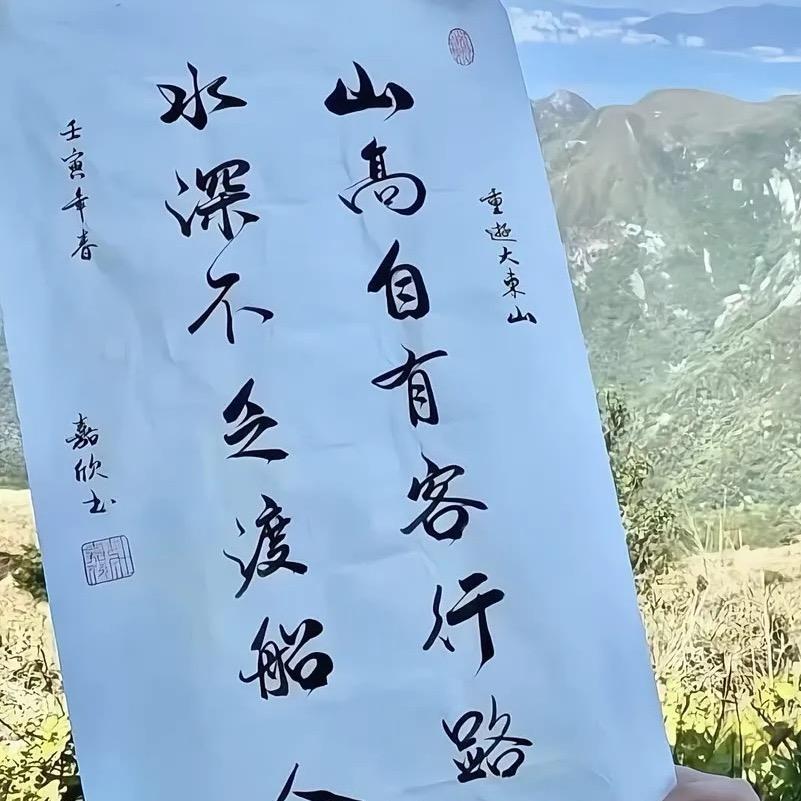 重遊大東山
山高自有客行路
水深不乏渡船
壬寅年春
嘉欣书